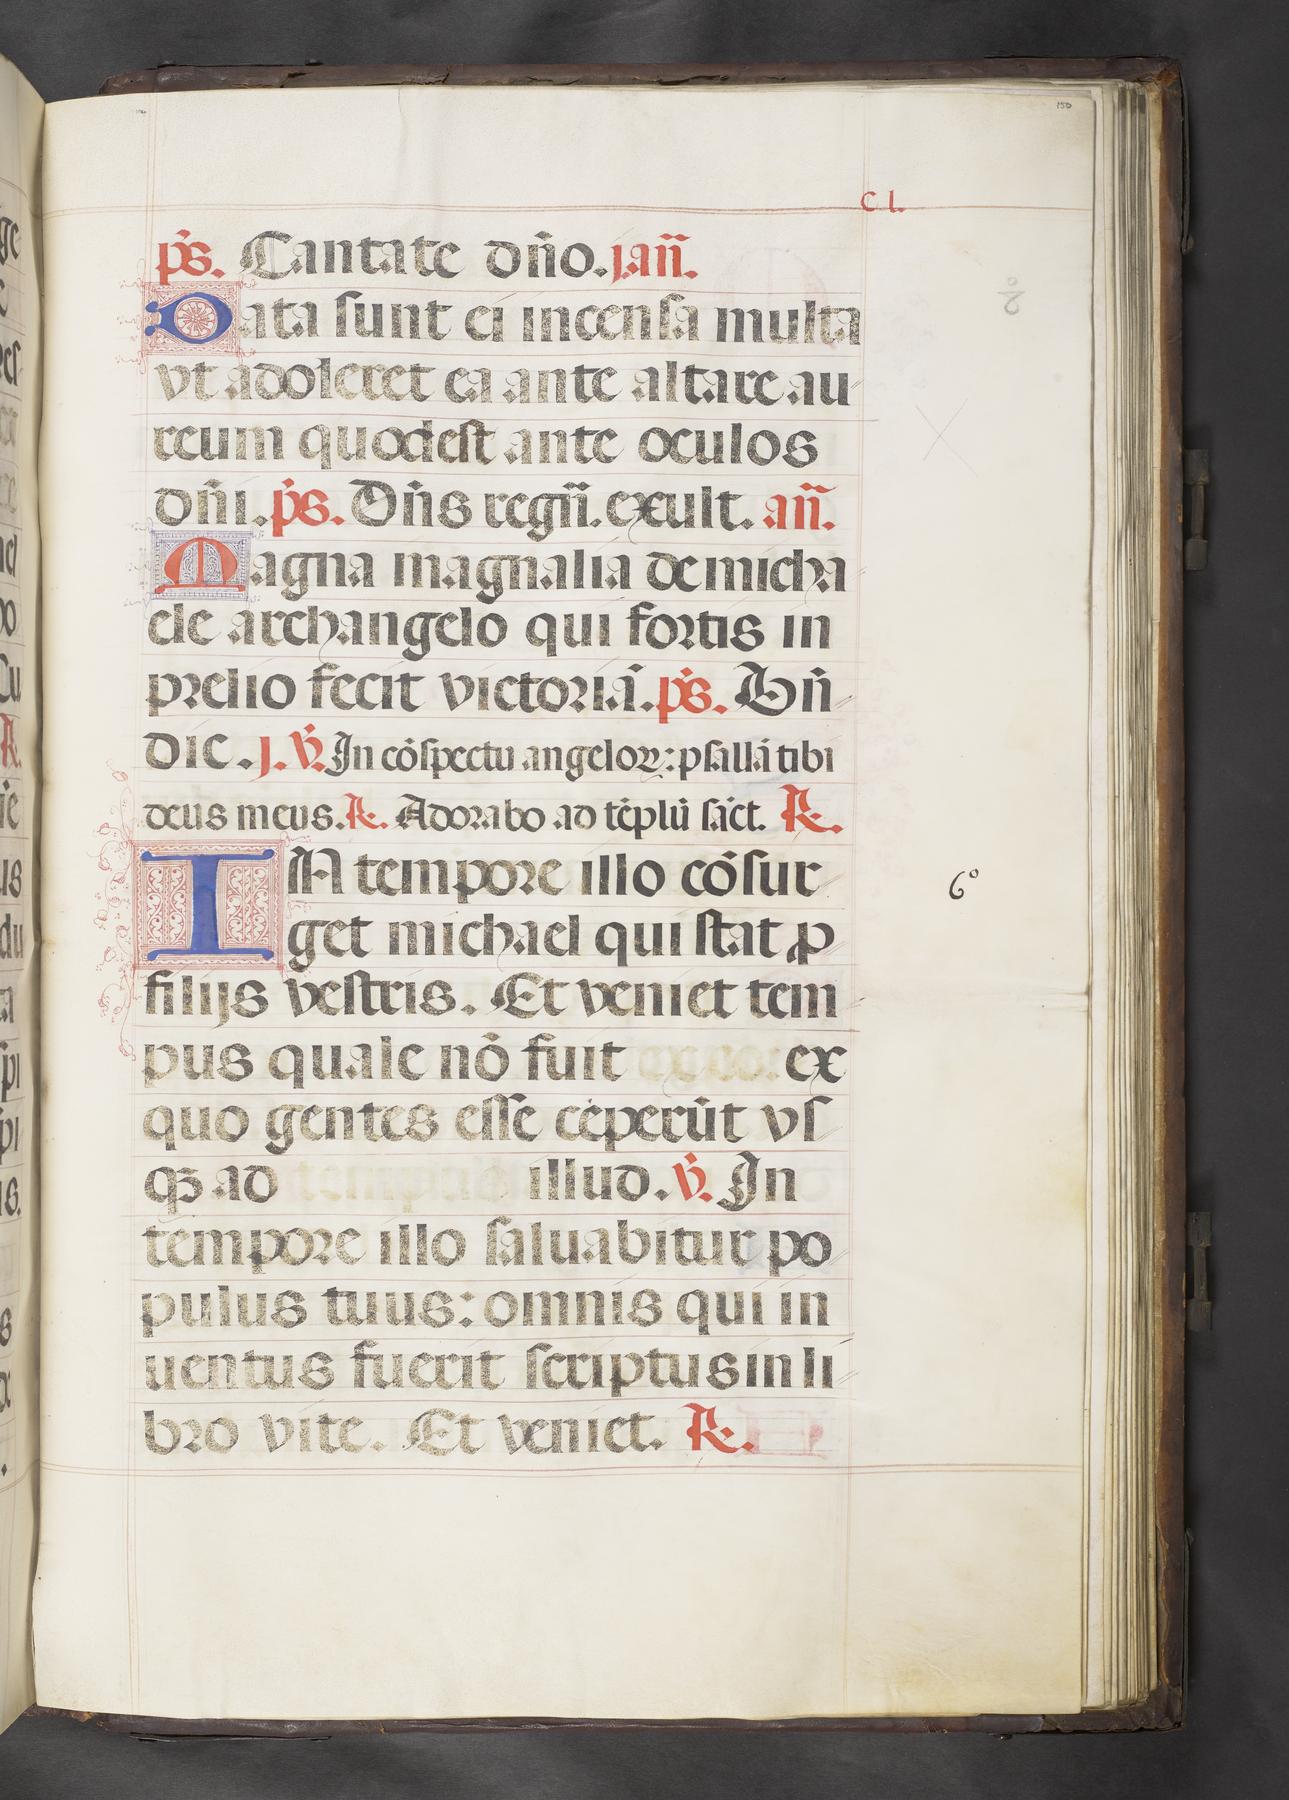 150
C L.
p̄s. Cantate dn̄o. j. an̄.
Data sunt ei incensa multa
vt adoleret ea ante altare au
reum quodest ante oculos
dn̄i. p̄s. Dn̄s regn̄. exult. an̄.
Magna magnalia de micha
ele archangelo qui fortis in
prelio fecit victoriā. p̄s. Bn̄
dic. j. V̄. In cōspectu angeloꝝ: psallā tibi
deus meus. ℟. Adorabo ad tēplū sāct. ℟.
IN tempore illo cōsur
get michael qui stat ꝓ
filijs vestris. Et veniet tem
pus quale nō fuit ex
quo gentes esse ceperūt vſ
qꝫ ad illud. V̄. In
tempore illo saluabitur po
pulus tuus: omnis qui in
uentus fuerit scriptus in li
bro vite. Et veniet. ℟.
6º